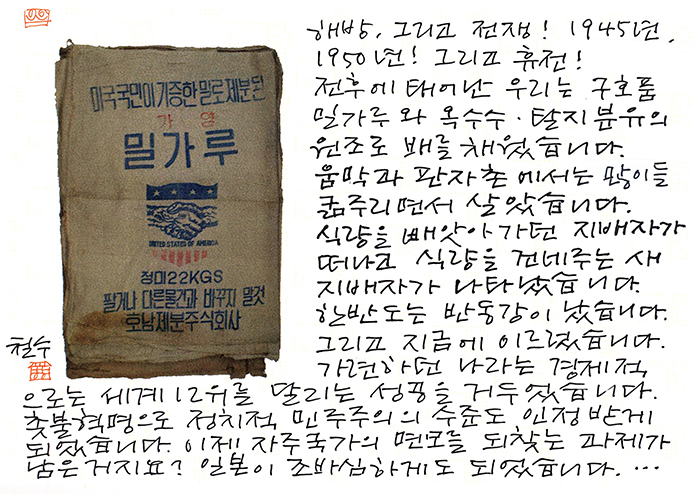 미국국민이기증한밀로제분된
가 영
밀가루
UNITED STATES OF AMERICA
정미22KGS
팔거나 다른물건과 바꾸지 말것
호남제분주식회사
해방, 그리고 전쟁! 1945년,
1950년! 그리고 휴전!
전후에 태어난 우리는 구호품
밀가루와 옥수수·탈지분유의
원조로 배를 채웠습니다.
움막과 판자촌에서는 많이들
굶주리면서 살았습니다.
식량을 빼앗아가던 지배자가
떠나고 식량을 건네주는 새
지배자가 나타났습니다.
한반도는 반동강이 났습니다.
그리고 지금에 이르렀습니다.
가련하던 나라는 경제적
으로는 세계 12위를 달리는 성공을 거두었습니다.
촛불혁명으로 정치적 민주주의의 수준도 인정받게
되었습니다. 이제 자주국가의 면모를 되찾는 과제가
남은거지요? 일본이 조바심하게도 되었습니다. …
철수